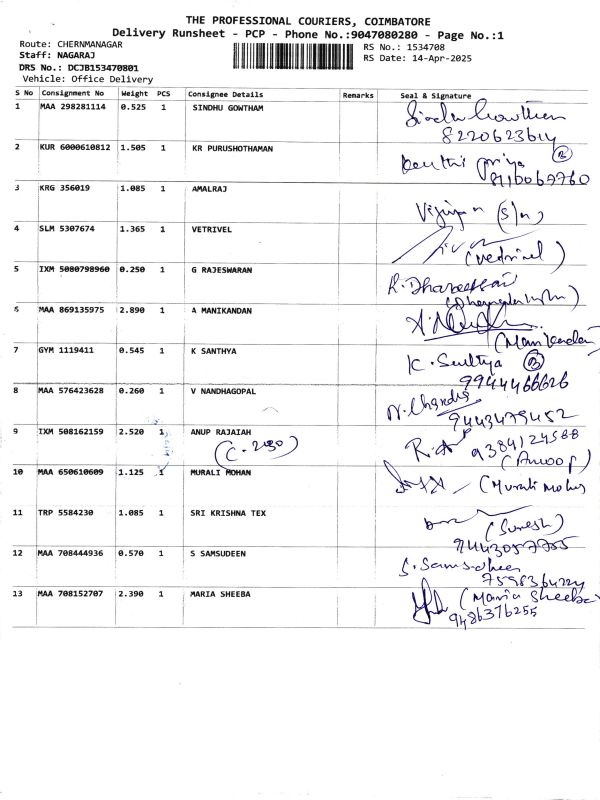 THE PROFESSIONAL COURIERS, COIMBATORE
Delivery Runsheet - PCP - Phone No.:9047080280 - Page No.:1
Route: CHERNMANAGAR
RS No.: 1534708
Staff: NAGARAJ
RS Date: 14-Apr-2025
DRS No.: DCJB153470801
Vehicle: Office Delivery
S No Consignment No Weight PCS Consignee Details Remarks Seal & Signature
1 MAA 298281114 0.525 1 SINDHU GOWTHAM Sindhu Gowtham
8220623614
2 KUR 6000610812 1.505 1 KR PURUSHOTHAMAN priya
3 KRG 356019 1.085 1 AMALRAJ (S/n)
4 SLM 5307674 1.365 1 VETRIVEL (Vedrivel)
5 IXM 5080798960 0.250 1 G RAJESWARAN R.
6 MAA 869135975 2.890 1 A MANIKANDAN A.
(Manikandan)
7 GYM 1119411 0.545 1 K SANTHYA K. Santhya
9944466626
8 MAA 576423628 0.260 1 V NANDHAGOPAL N. Chandra
9443479452
9 IXM 508162159 2.520 1 ANUP RAJAIAH 9384124588
(C-2030) (Anoop)
10 MAA 650610609 1.125 1 MURALI MOHAN (Murali Mohan
11 TRP 5584230 1.085 1 SRI KRISHNA TEX (Suresh)
9443057755
12 MAA 708444936 0.570 1 S SAMSUDEEN S. Samsudheen
13 MAA 708152707 2.390 1 MARIA SHEEBA (Maria Sheeba)
9486376255